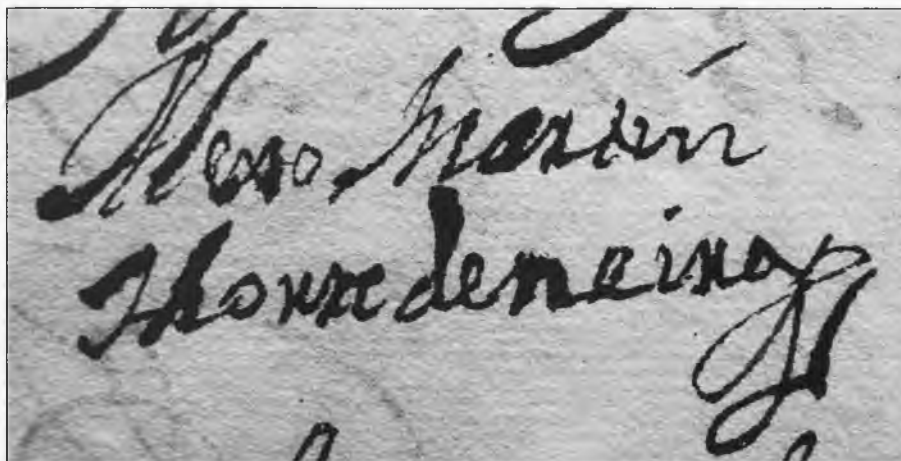 Alexo Martin
Thorre demeina